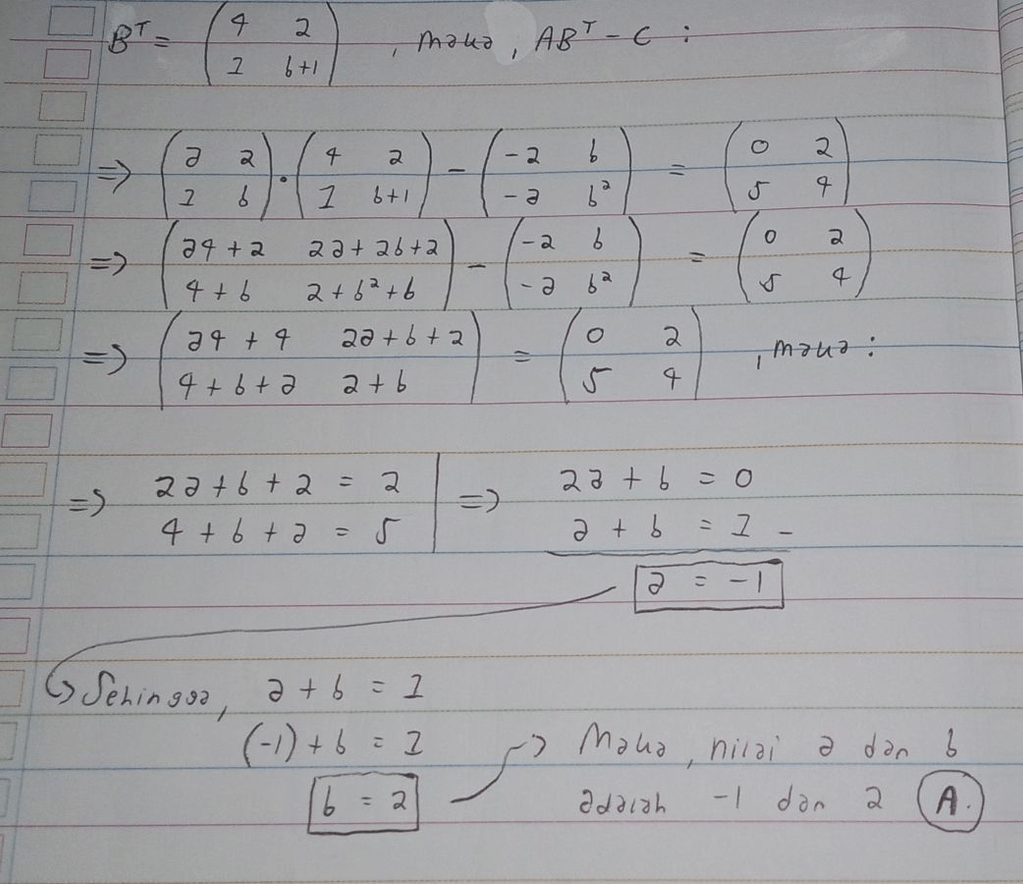 Bᵀ = (4 2; 1 b+1), maka, ABᵀ - C :
=> (a 2; 1 b) · (4 2; 1 b+1) - (-2 b; -a b²) = (0 2; 5 4)
=> (a4 + 2 2a + 2b + 2; 4 + b 2 + b² + b) - (-2 b; -a b²) = (0 2; 5 4)
=> (a4 + 4 2a + b + 2; 4 + b + a 2 + b) = (0 2; 5 4), maka :
=> 2a + b + 2 = 2 | => 2a + b = 0
4 + b + a = 5 | a + b = 1 -
a = -1
Sehingga, a + b = 1
(-1) + b = 1 -> Maka, nilai a dan b
b = 2 adalah -1 dan 2 (A.)